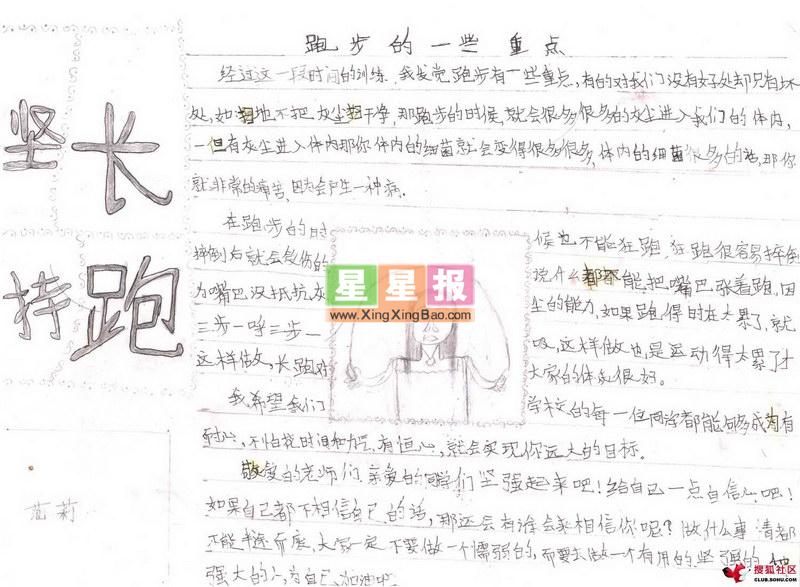 坚 长
持 跑
跑步的一些重点
经过这一段时间的训练，我发觉，跑步有一些重点，有的对我们没有好处却只有坏
处，如扫地不把灰尘扫干净，那跑步的时候，就会很多很多的灰尘进入我们的体内，
一但有灰尘进入体内那你体内的细菌就会变得很多很多，体内的细菌很多的话，那你
就非常的痛苦，因为会产生一种病。
在跑步的时候也不能狂跑，狂跑很容易摔倒
摔倒后就会受伤的 说什么都不能把嘴巴张着跑，因
为嘴巴没抵抗灰尘的能力，如果跑得时在太累了，就
三步一呼三步一吸，这样做也是运动得太累了才
这样做，长跑对大家的体 很好。
我希望我们学校的每一位同学都能够成为有
耐心，不怕花时间和力气，有恒心，就会实现你远大的目标。
敬爱的老师们、亲爱的同学们坚强起来吧！给自己一点自信心吧！
如果自己都不相信自己的话，那还会有谁会来相信你呢？做什么事请都
不能半途 ，大家一定不要做一个懦弱的，而要去做一个有用的坚强的
强大的人，为自己加油吧
范莉
星星报
www.XingXingBao.com
搜狐社区
CLUB.SOHU.COM